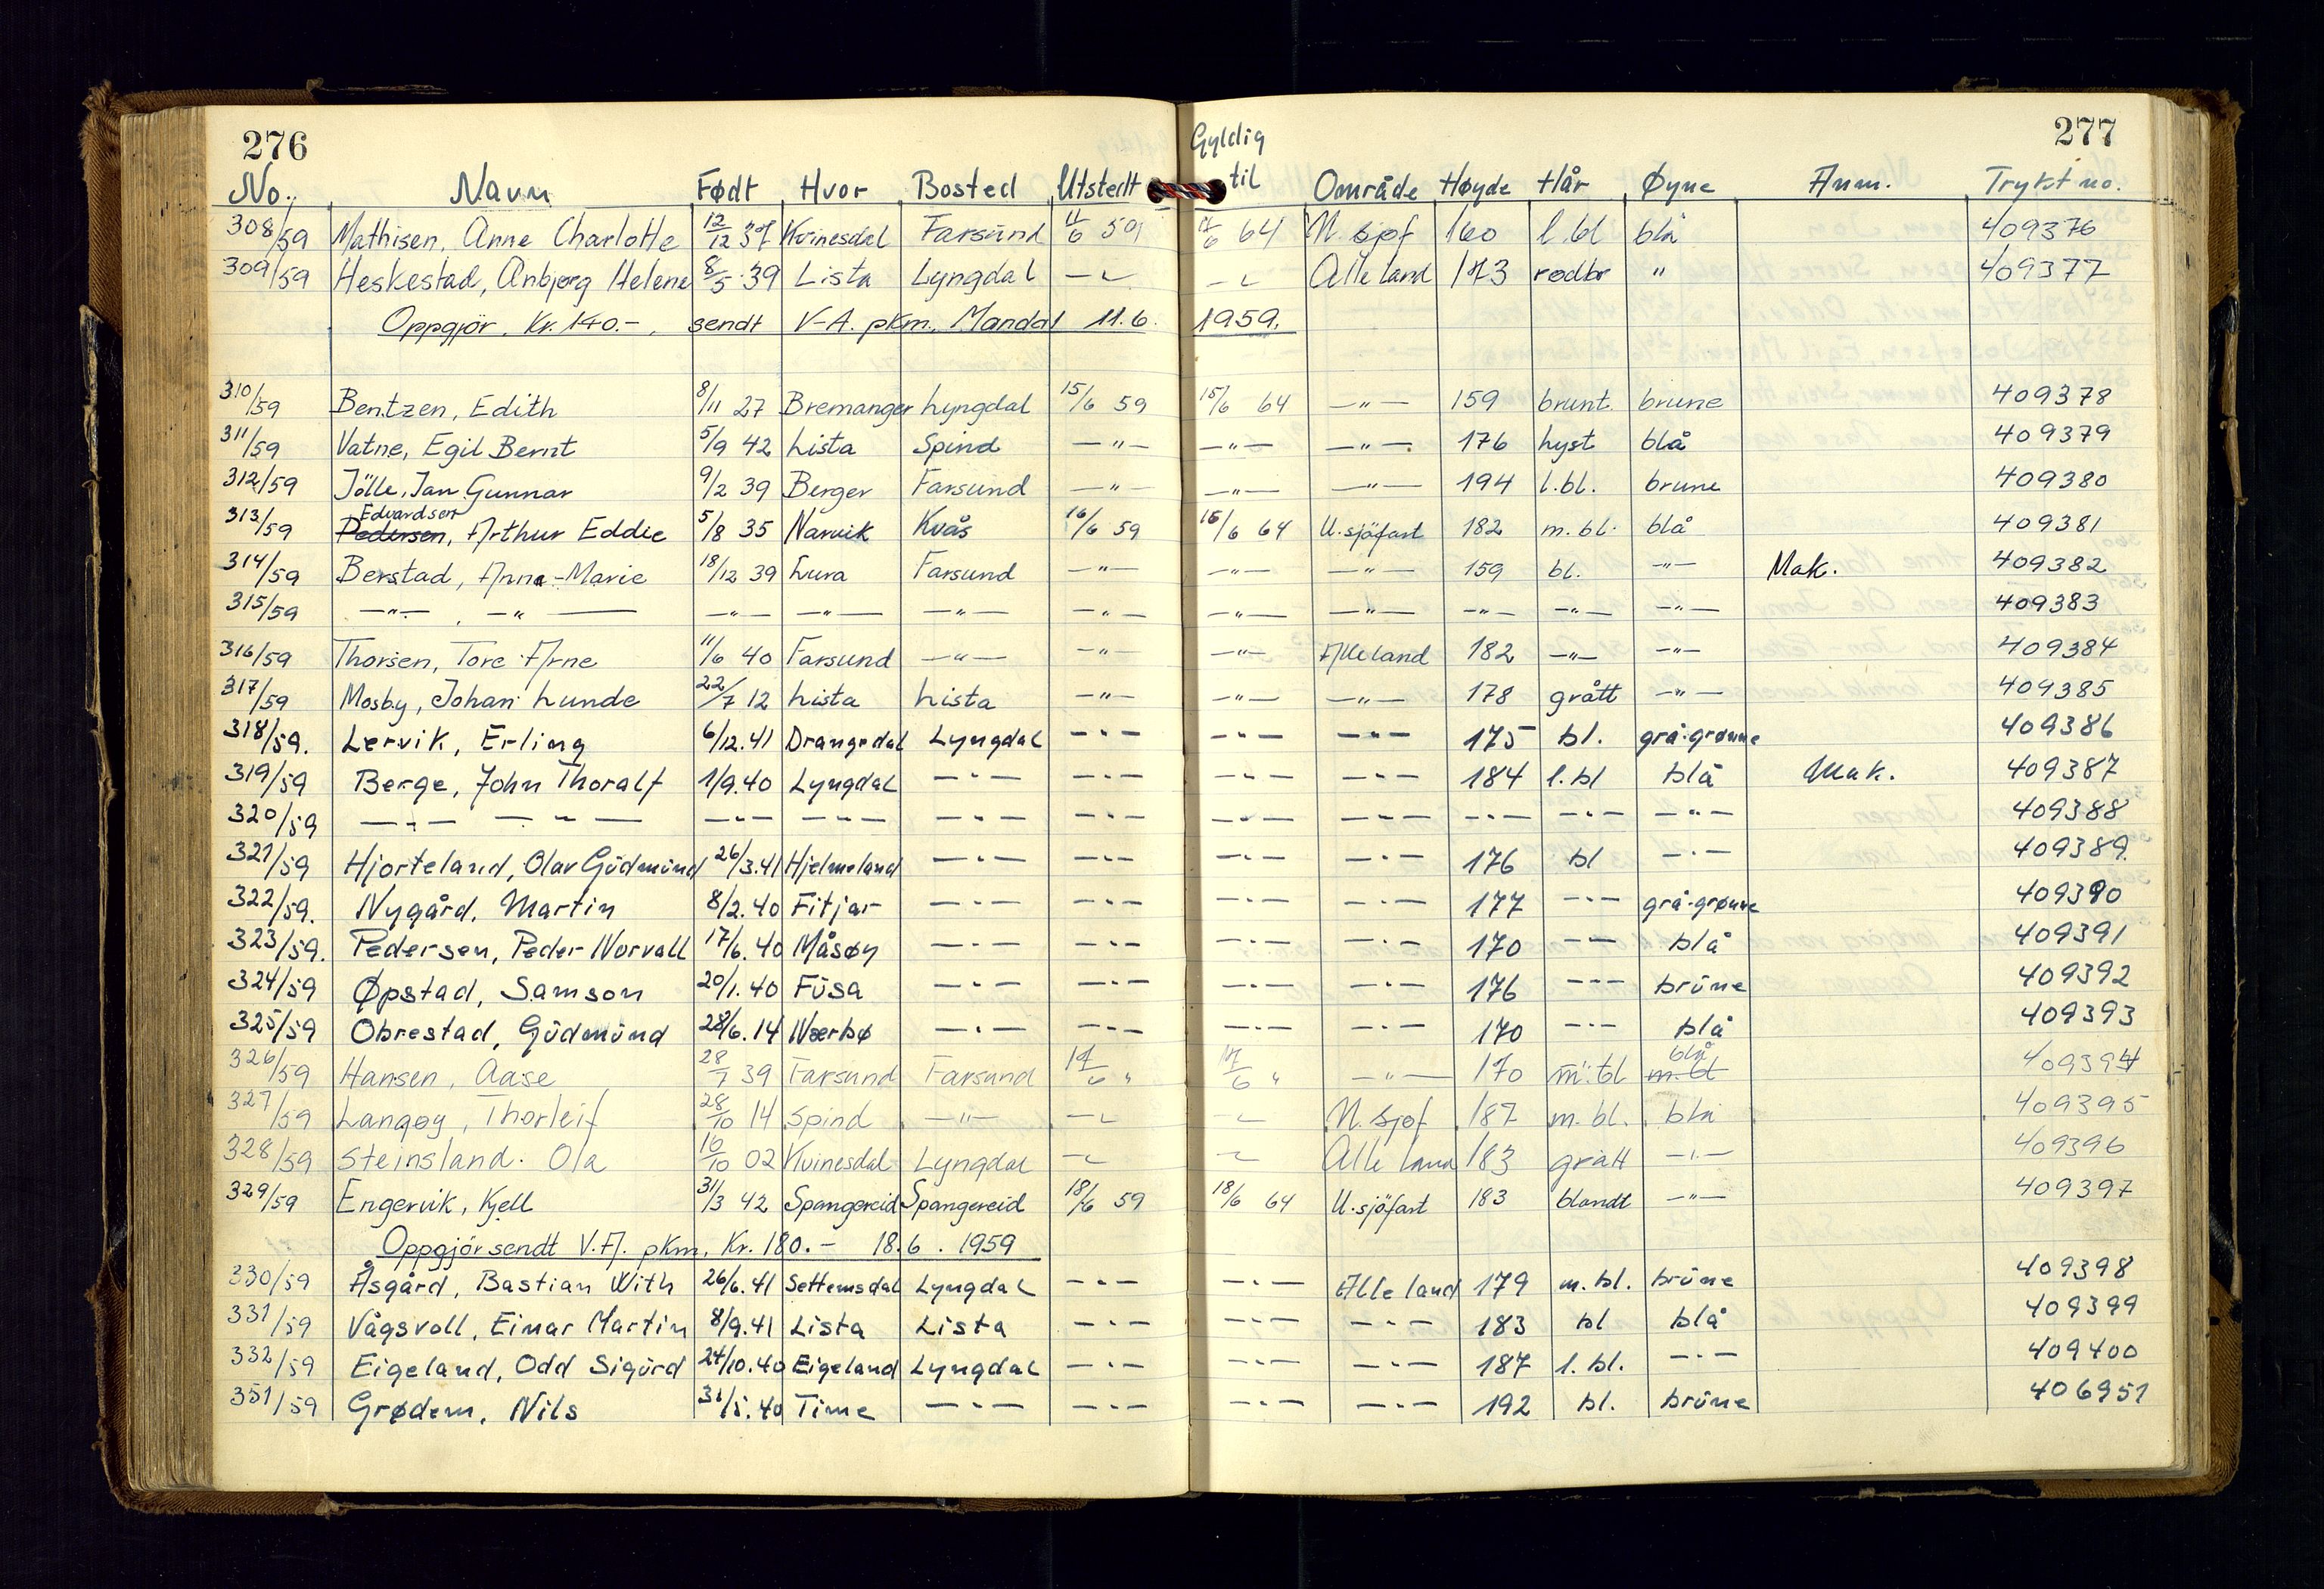 276 277
Gyldig
No. Navn Født Hvor Bosted Utstedt til Område Høyde Hår Øyne Anm. Trykt no.
308/59 Mathisen, Anne Charlotte 12/12 37 Kvinesdal Farsund 11/6 59 11/6 64 U. sjøf 160 l. bl blå 409376
309/59 Heskestad, Anbjørg Helene 8/5 39 Lista Lyngdal — " — " Alle land 173 rødbr " 409377
Oppgjör, Kr. 140.-, sendt V-A. pkm. Mandal 11.6. 1959.
310/59 Bentzen, Edith 8/11 27 Bremanger Lyngdal 15/6 59 15/6 64 — " — 159 brunt. brune 409378
311/59 Vatne, Egil Bernt 5/9 42 Lista Spind — " — — " — — " — 176 lyst blå 409379
312/59 Jölle, Jan Gunnar 9/2 39 Berger Farsund — " — — " — — " — 194 l. bl. brune 409380
Edvardsen
313/59 Pedersen, Arthur Eddie 5/8 35 Narvik Kvås 16/6 59 16/6 64 U. sjöfart 182 m. bl. blå 409381
314/59 Berstad, Anna-Marie 18/12 39 Lura Farsund — " — — " — — " — 159 bl. — " — Mak. 409382
315/59 — " — , — " — — " — — " — — " — — " — — " — — " — — " — — " — — " — 409383
316/59 Thorsen, Tore Arne 11/6 40 Farsund — " — — " — — " — Alle land 182 — " — — " — 409384
317/59 Mosby, Johan Lunde 22/7 12 Lista Lista — " — — " — — " — 178 grått — " — 409385
318/59. Lervik, Erling 6/12.41 Drangedal Lyngdal — " — — " — — " — 175 bl. grå-grønne 409386
319/59 Berge, John Thoralf 1/9.40 Lyngdal — " — — " — — " — — " — 184 l. bl blå Mak. 409387
320/59 — " — — " — — " — — " — — " — — " — — " — — " — — " — — " — — " — 409388
321/59 Hjorteland, Olav Gŭdmŭnd 26/3.41 Hjelmeland — " — — " — — " — — " — 176 bl — " — 409389.
322/59. Nygård, Martin 8/2.40 Fitjar — " — — " — — " — — " — 177 — " — grå-grønne 409390
323/59. Pedersen, Peder Norvall 17/6.40 Måsøy — " — — " — — " — — " — 170 — " — blå 409391
324/59 Øpstad, Samson 20/1.40 Fŭsa — " — — " — — " — — " — 176 — " — brŭne 409392
325/59 Obrestad, Gŭdmŭnd 28/6.14 Nærbø — " — — " — — " — — " — 170 — " — blå 409393
blå
326/59 Hansen, Aase 28/7 39 Farsund Farsund 17/6 " 17/6 " — " — 170 m. bl m. bl 409394
327/59 Langøy, Thorleif 28/10 14 Spind — " — — " — " U. sjøf 187 m. bl. blå 409395
328/59 Steinsland. Ola 10/10 02 Kvinesdal Lyngdal — " — " Alle land 183 grått — " — 409396
329/59 Engervik, Kjell 31/3 42 Spangereid Spangereid 18/6 59 18/6 64 U. sjöfart 183 blandt — " — 409397
Oppgjör sendt V.A. pkm, Kr. 180.- 18.6. 1959
330/59 Åsgård, Bastian With 26/6.41 Settemsdal Lyngdal — " — — " — Alle land 179 m. bl. brŭne 409398
331/59 Vågsvoll, Einar Martin 8/9.41 Lista Lista — " — — " — — " — 183 bl blå 409399
332/59 Eigeland, Odd Sigŭrd 24/10.40 Eigeland Lyngdal — " — — " — — " — 187 l. bl. — " — 409400
351/59 Grødem, Nils 31/5.40 Time — " — — " — — " — — " — 192 bl. brŭne 406951